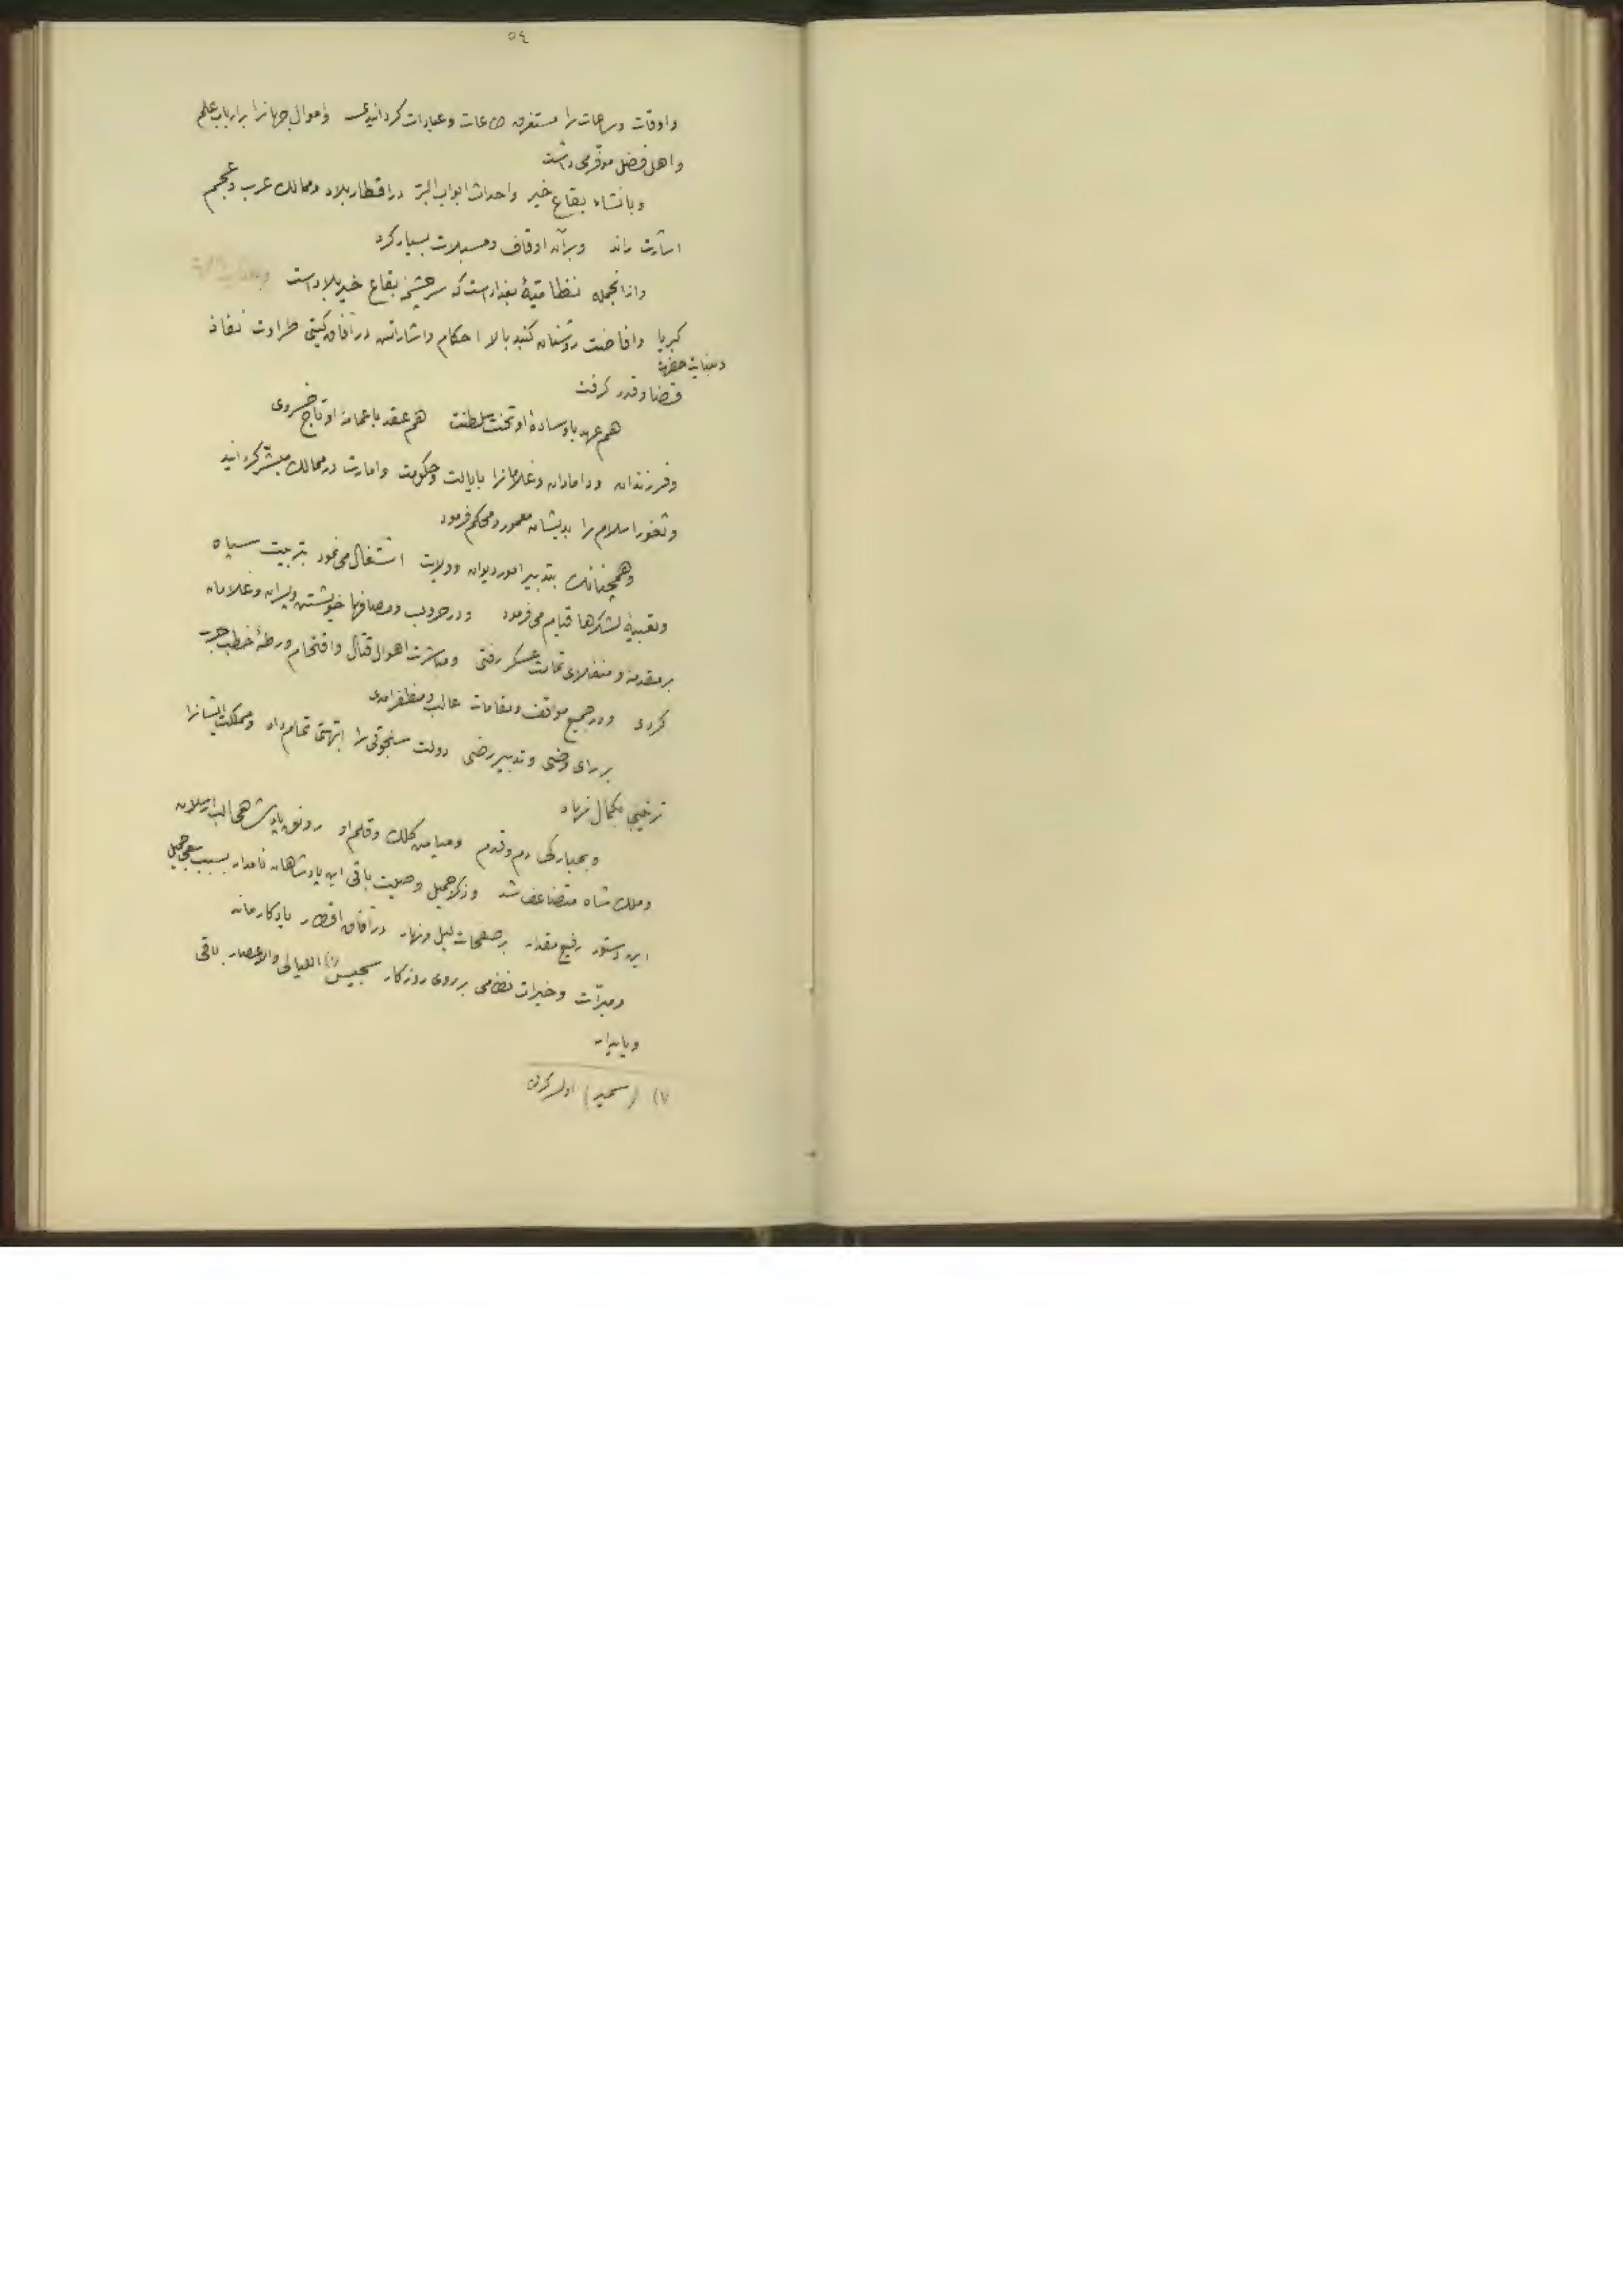 ٥٤
واوقات وساعات را مستغرق طاعات وعبادات کردانیدی واموال جهانرا برارباب علم
واهل فضل موفّر می داشت
وبانشاء بقاع خیر واحداث ابواب البرّ در اقطار بلاد وممالک عرب وعجم
اشارت راند وبرآن اوقاف ومسبلات بسیار کرد
وازانجمله نظامیّهٔ بغداداست که سرچشمهٔ بقاع خیر بلاد است
کبریا وافاضت روشنان کنبد بالا احکام واشاراتش در آفاق کیتی طراوت نفاذ
وبعنایت حضرت
قضا وقدر کرفت
هم عهد با وسادهٔ او تخت سلطنت هم عقد با عمامهٔ او تاج خسروی
وفرزندان ودامادان وغلامانرا بایالت وحکومت وامارت در ممالک کردانید
وثغور اسلام را بدیشان معمور ومحکم فرمود
وهمچنانک بتدبیر امور دیوان وولایت اشتغال می نمود بتربیت سپاه
وتعبیهٔ لشکرها قیام می فرمود ودر حروب ومصافها خویشتن وپسران وغلامان
بر مقدمه ومنغلای تمامت عسکر رفتی ومباشرت اهوال قتال واقتحام ورطهٔ خطب حرب
کردی ودر جمیع مواقف ومقامات غالب ومظفر آمدی
برای وضی وتدبیر رضی دولت سلجوقی را ابّهتی تمام داد ومملکت ایشانرا
ترتیبی بکمال نهاد
وبمبارکی دم وقدم ومیامن کلک وقلم او رونق پادشاهی الب ارسلان
وملک شاه متضاعف شد وذکر جمیل وصیت باقی این پادشاهان نامدار بسبب سعی جمیل
این دستور رفیع مقدار بر صفحات لیل ونهار در آفاق واقطار یادکار ماند
ومبرّات وخیرات نظامی بر روی روزکار سجیس (١) اللیالی والاعصار باقی
وپایدار
١) (سمیر) اولر کرک